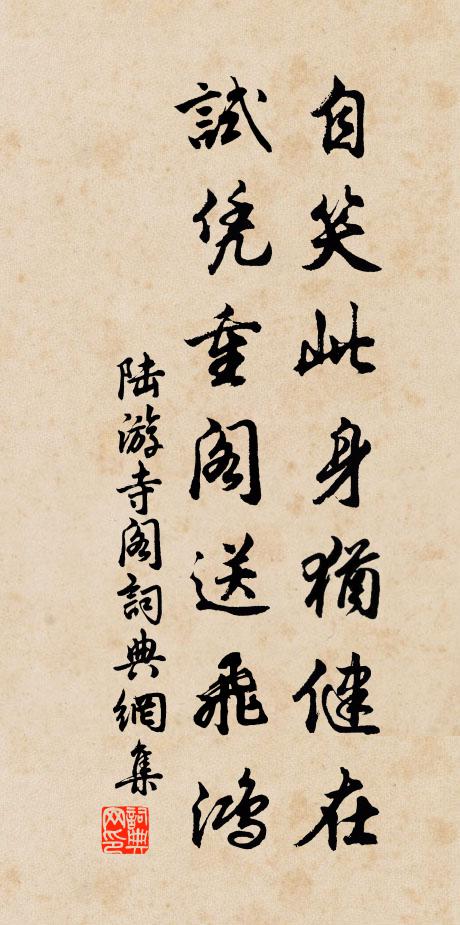 自笑此身猶健在
試凭重閣送飛鴻
陆游寺阁詞典網集
詞典网印